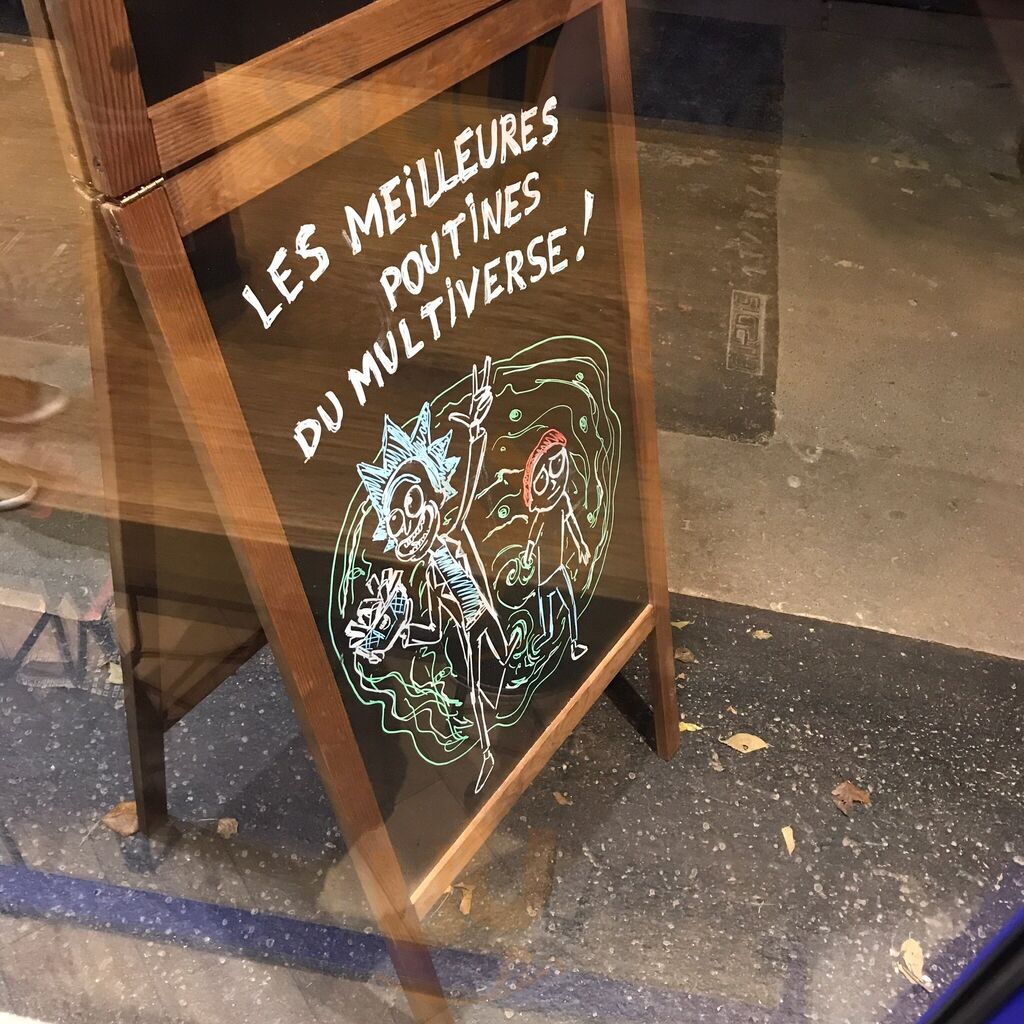 LES MEILLEURES
POUTINES
DU MULTIVERSE!